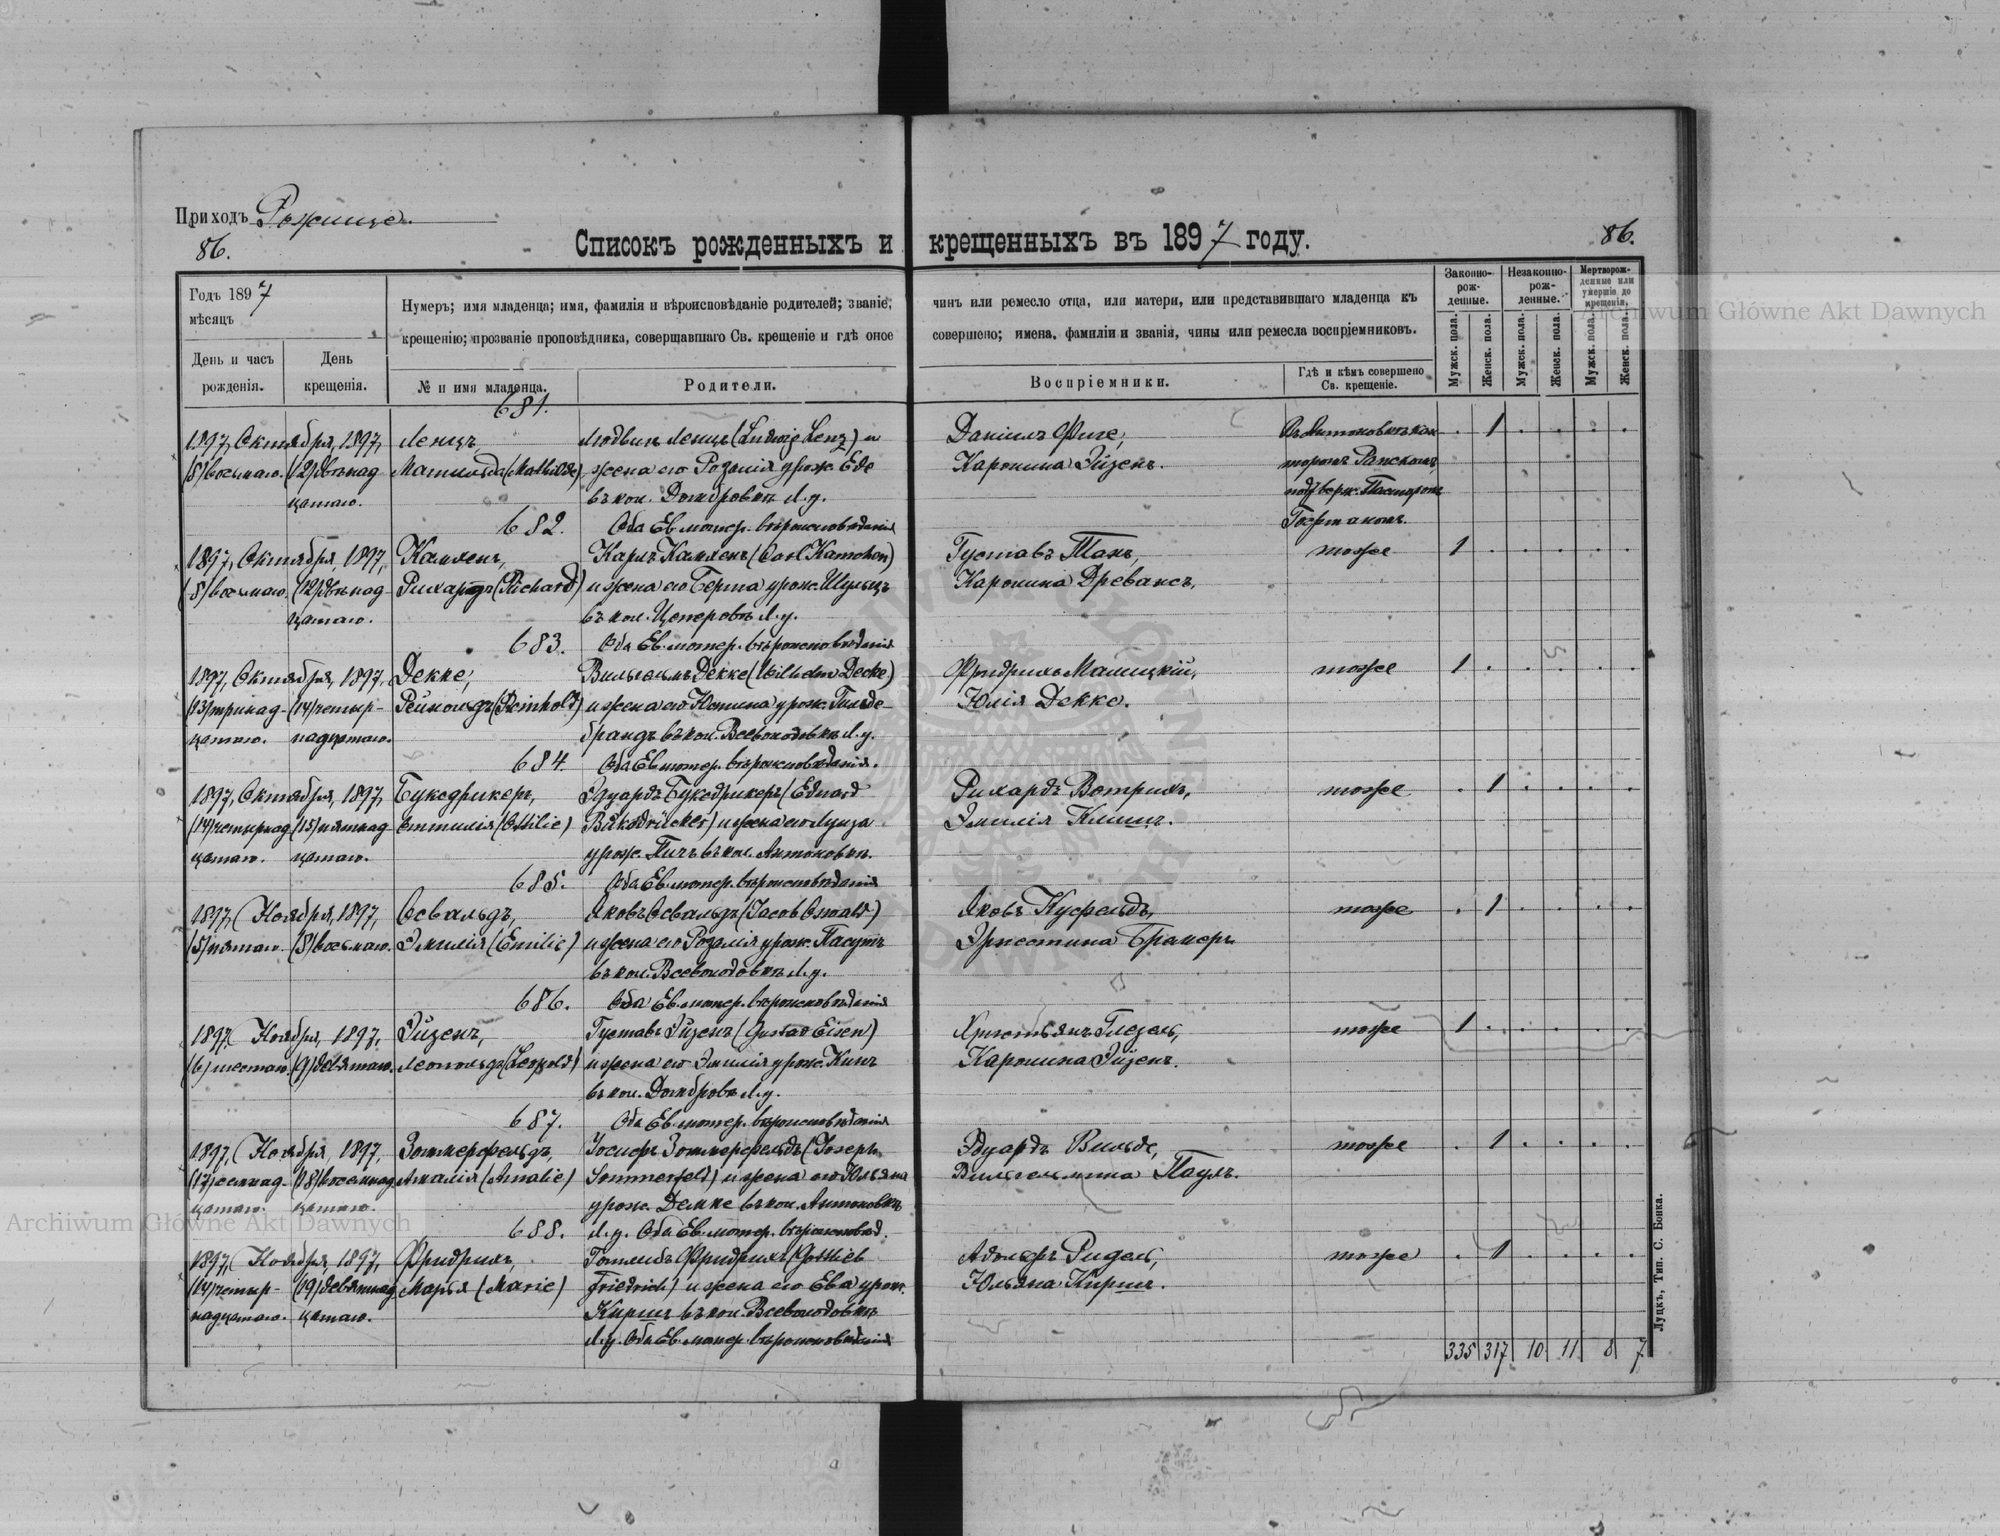 Приходъ Рожище.
86.
Списокъ рожденныхъ и крещенныхъ въ 1897 году.
86.
Годъ 1897
мѣсяцъ
День и часъ рожденія.
День крещенія.
Нумеръ; имя младенца; имя, фамилія и вѣроисповѣданіе родителей; званіе, чинъ или ремесло отца, или матери, или представившаго младенца къ
крещенію; прозваніе проповѣдника, совершавшаго Св. крещеніе и гдѣ оное совершено; имена, фамиліи и званія, чины или ремесла воспріемниковъ.
№ и имя младенца.
Родители.
Воспріемники.
Гдѣ и кѣмъ совершено Св. крещеніе.
Законно-рож-денные.
Незаконно-рож-денные.
Мертворож-денные или умершіе до крещенія.
Мужск. пола.
Женск. пола.
Мужск. пола.
Женск. пола.
Мужск. пола.
Женск. пола.
681.
1897, Октября, 1897, Ленцъ, Людвигъ Ленцъ (Ludwig Lenz) и Даніилъ Фиге, 1
(8) восьмаго. (12) двѣнад- Матильда (Mathilde) жена его Розалія урож. Еде Каролина Эйзенъ.
цатаго. въ кол. Домбровкѣ Л. у.
Оба Ев. лютер. вѣроисповѣданія
682.
1897, Октября, 1897, Камченъ, Карлъ Камченъ (Carl Kamchen) Густавъ Танъ, тоже 1
(8) восьмаго. (12) двѣнад- Рихардъ (Richard) и жена его Берта урож. Шульцъ Каролина Древансъ.
цатаго. въ кол. Цеперовѣ Л. у.
Оба Ев. лютер. вѣроисповѣданія
683.
1897, Октября, 1897, Декке, Вильгельмъ Декке (Wilhelm Decke) Фридрихъ Малицкій, тоже 1
(13) тринад- (14) четыр- Рейнольдъ (Reinhold) и жена его Юстина урож. Гильде- Юлія Декке.
цатаго. надцатаго. брандъ въ кол. Всеволодовкѣ Л. у.
Оба Ев. лютер. вѣроисповѣданія.
684.
1897, Октября, 1897, Буксдрикеръ, Эдуардъ Буксдрикеръ (Eduard Рихардъ Вотрихъ, тоже 1
(14) четырнад- (15) пятнад- Оттилія (Ottilie) Buksdrücker) и жена его Луиза Эмилія Клишъ.
цатаго. цатаго. урож. Пичъ въ кол. Антоновкѣ.
Оба Ев. лютер. вѣроисповѣданія
685.
1897, Ноября, 1897, Освальдъ, Яковъ Освальдъ (Jacob Oswald) Яковъ Кусфельдъ, тоже 1
(5) пятаго. (8) восьмаго. Эмилія (Emilie) и жена его Розалія урож. Эрнестина Брамеръ.
въ кол. Всеволодовкѣ Л. у.
Оба Ев. лютер. вѣроисповѣданія
686.
1897, Ноября, 1897, Эйзенъ, Густавъ Эйзенъ (Gustav Eisen) Христьянъ Глезель, тоже 1
(6) шестаго. (9) девятаго. Леопольдъ (Leopold) и жена его Эмилія урож. Кинъ Каролина Эйзенъ.
въ кол. Домбровѣ Л. у.
Оба Ев. лютер. вѣроисповѣданія
687.
1897, Ноября, 1897, Зоммерфельдъ, Іосифъ Зоммерфельдъ (Joseph Эдуардъ Вильде, тоже 1
(17) семнад- (18) восемнад- Амалія (Amalie) Sommerfeld) и жена его Юльяна Вильгельмина Паулъ.
цатаго. цатаго. урож. Демке въ кол. Антоновкѣ
Л. у. Оба Ев. лютер. вѣроисповѣд.
688.
1897, Ноября, 1897, Фридрихъ, Готлибъ Фридрихъ (Gottlieb Адольфъ Ридель, тоже 1
(14) четыр- (19) девятнад- Марья (Marie) Friedrich) и жена его Ева урож. Юльяна Киршъ.
надцатаго. цатаго. Киршъ въ кол. Всеволодовкѣ
Л. у. Оба Ев. лютер. вѣроисповѣданія
335 317 10 11 8 7
Луцкъ, Тип. С. Бонка.
Archiwum Główne Akt Dawnych
Archiwum Główne Akt Dawnych